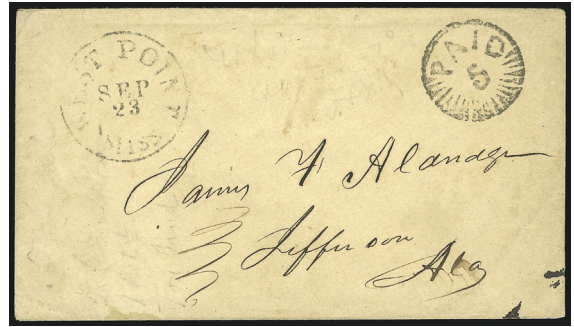 WEST POINT
SEP
23
MISS
PAID
5
James F Alandger
Jefferson
Ala